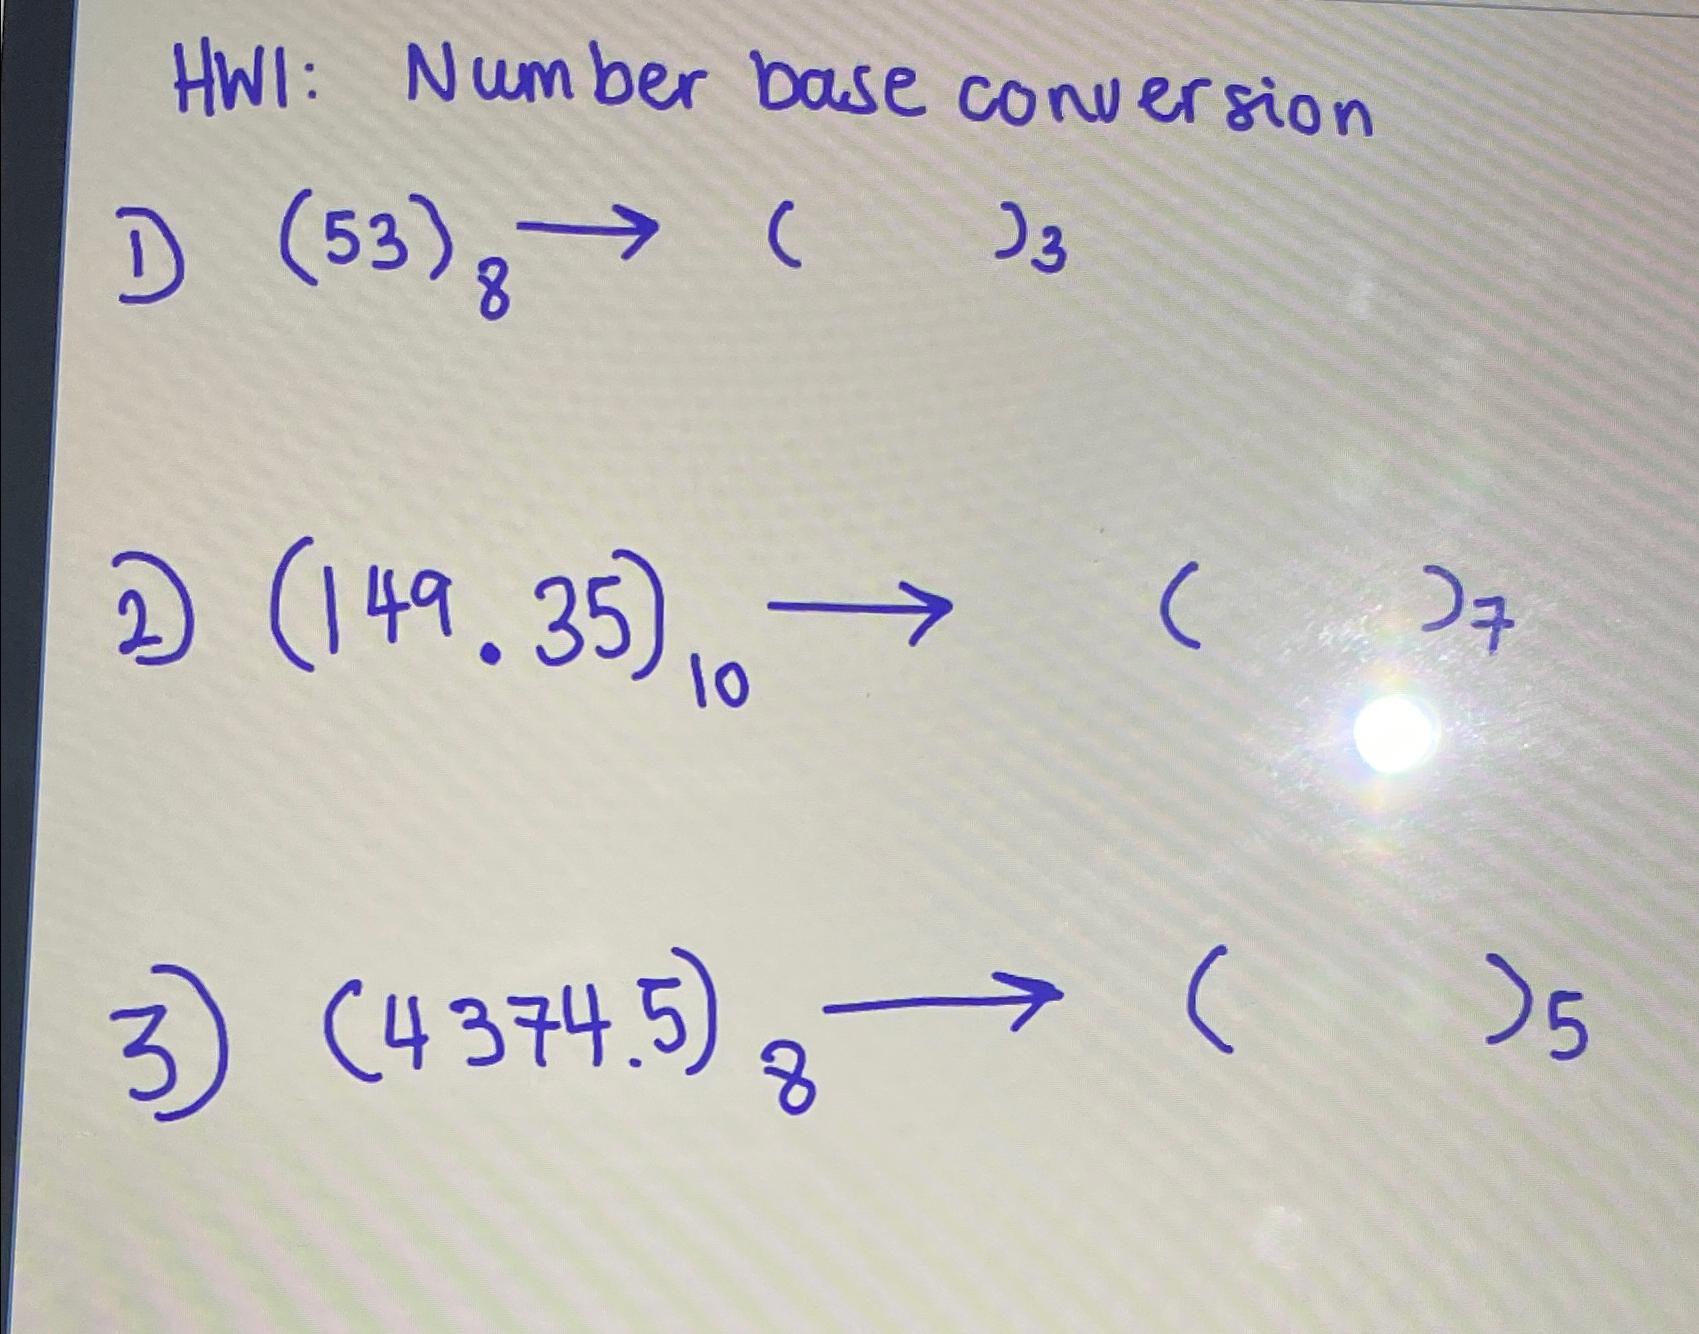 HW1: Number base conversion
1) (53)8 → (    )3
2) (149.35)10 → (    )7
3) (4374.5)8 → (    )5